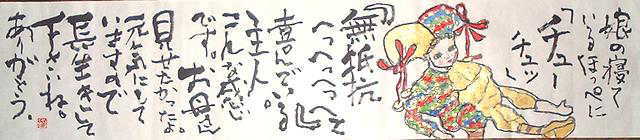 娘の寝て
いるほっぺに
「チュー
チュッ」
「無抵抗」
へっへっへっと
喜んでいる
主人。
こんな感じ
です。お母さん
見せたかったな。
元気にして
いますので
長生きして
下さいね。
ありがとう。